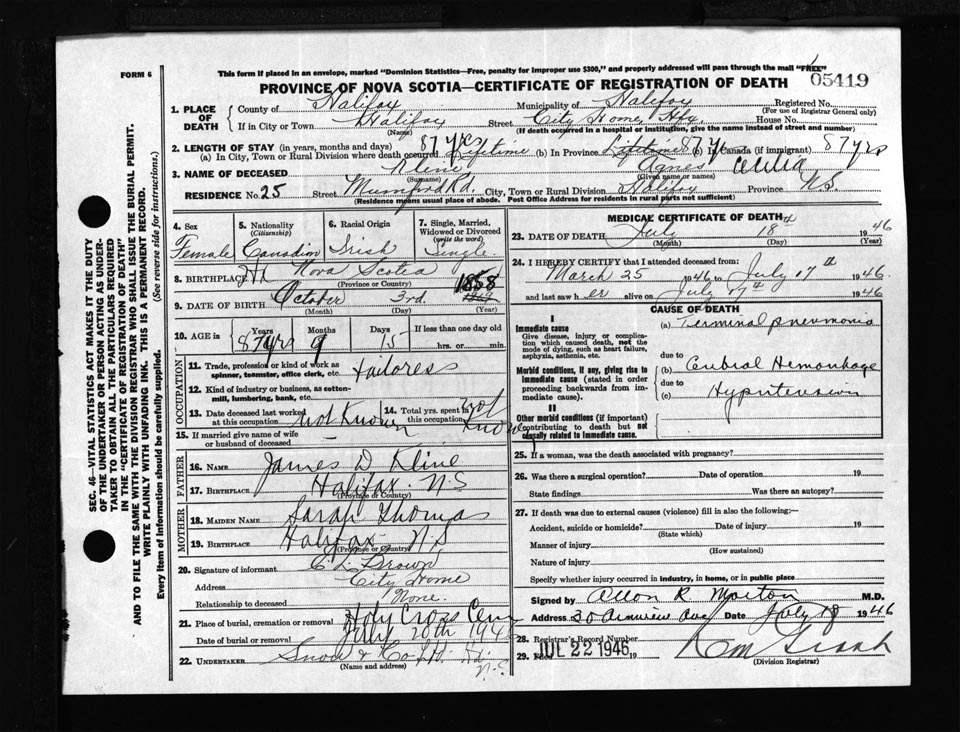 FORM 6
This form if placed in an envelope, marked "Dominion Statistics—Free, penalty for improper use $300," and properly addressed will pass through the mail "FREE"
05419
PROVINCE OF NOVA SCOTIA—CERTIFICATE OF REGISTRATION OF DEATH
1. PLACE OF DEATH County of Halifax Municipality of Halifax Registered No.
(For use of Registrar General only)
If in City or Town Halifax Street City Home, Hfx. House No.
(Name) (If death occurred in a hospital or institution, give the name instead of street and number)
2. LENGTH OF STAY (in years, months and days)
(a) In City, Town or Rural Division where death occurred 87 yrs Lifetime (b) In Province Lifetime 87 y (c) In Canada (if immigrant) 87 yrs
3. NAME OF DECEASED Kline Agnes Cecilia
(Surname) (Given name or names)
RESIDENCE No. 25 Street Mumford Rd. City, Town or Rural Division Halifax Province N.S.
(Residence means usual place of abode. Post Office Address for residents in rural parts not sufficient)
SEC. 46—VITAL STATISTICS ACT MAKES IT THE DUTY
OF THE UNDERTAKER OR PERSON ACTING AS UNDER-
TAKER TO OBTAIN ALL THE PARTICULARS REQUIRED
IN THE "CERTIFICATE OF REGISTRATION OF DEATH"
AND TO FILE THE SAME WITH THE DIVISION REGISTRAR WHO SHALL ISSUE THE BURIAL PERMIT.
WRITE PLAINLY WITH UNFADING INK. THIS IS A PERMANENT RECORD.
Every item of Information should be carefully supplied. (See reverse side for instructions.)
4. Sex
Female
5. Nationality
(Citizenship)
Canadian
6. Racial Origin
Irish
7. Single, Married, Widowed or Divorced
(write the word)
Single
8. BIRTHPLACE Nova Scotia
(Province or Country)
9. DATE OF BIRTH October 3rd. 1858
(Month) (Day) (Year)
10. AGE in Years Months Days If less than one day old
87 yrs 9 15 hrs. or min.
OCCUPATION
11. Trade, profession or kind of work as spinner, teamster, office clerk, etc. Tailoress
12. Kind of industry or business, as cotton-mill, lumbering, bank, etc.
13. Date deceased last worked at this occupation Not Known
14. Total yrs. spent in this occupation Not Known
15. If married give name of wife or husband of deceased
FATHER
16. NAME James D. Kline
17. BIRTHPLACE Halifax N.S
(Province or Country)
MOTHER
18. MAIDEN NAME Sarah Thomas
19. BIRTHPLACE Halifax N.S
(Province or Country)
20. Signature of informant C L Brown
Address City Home
Relationship to deceased None.
21. Place of burial, cremation or removal Holy Cross Cem
Date of burial or removal July 20th 194
22. UNDERTAKER Snow & Co Ltd. N.S.
(Name and address)
MEDICAL CERTIFICATE OF DEATH
23. DATE OF DEATH July 18th 1946
(Month) (Day) (Year)
24. I HEREBY CERTIFY that I attended deceased from:
March 25 1946 to July 17th 1946.
and last saw h er alive on July 17th 1946
CAUSE OF DEATH
I
Immediate cause
Give disease, injury or complication which caused death, not the mode of dying, such as heart failure, asphyxia, asthenia, etc.
(a) Terminal pneumonia
due to
Morbid conditions, if any, giving rise to immediate cause (stated in order proceeding backwards from immediate cause).
(b) Cerebral Hemorrhage
due to
(c) Hypertension
II
Other morbid conditions (if important) contributing to death but not causally related to immediate cause.
25. If a woman, was the death associated with pregnancy?
26. Was there a surgical operation? Date of operation 19
State findings Was there an autopsy?
27. If death was due to external causes (violence) fill in also the following:—
Accident, suicide or homicide? Date of injury 19
(State which)
Manner of injury
(How sustained)
Nature of injury
Specify whether injury occurred in industry, in home, or in public place
Signed by Allan R Morton M.D.
Address 30 Armview Ave Date July 18 1946
28. Registrar's Record Number
29. Filed JUL 22 1946 19
(Division Registrar)